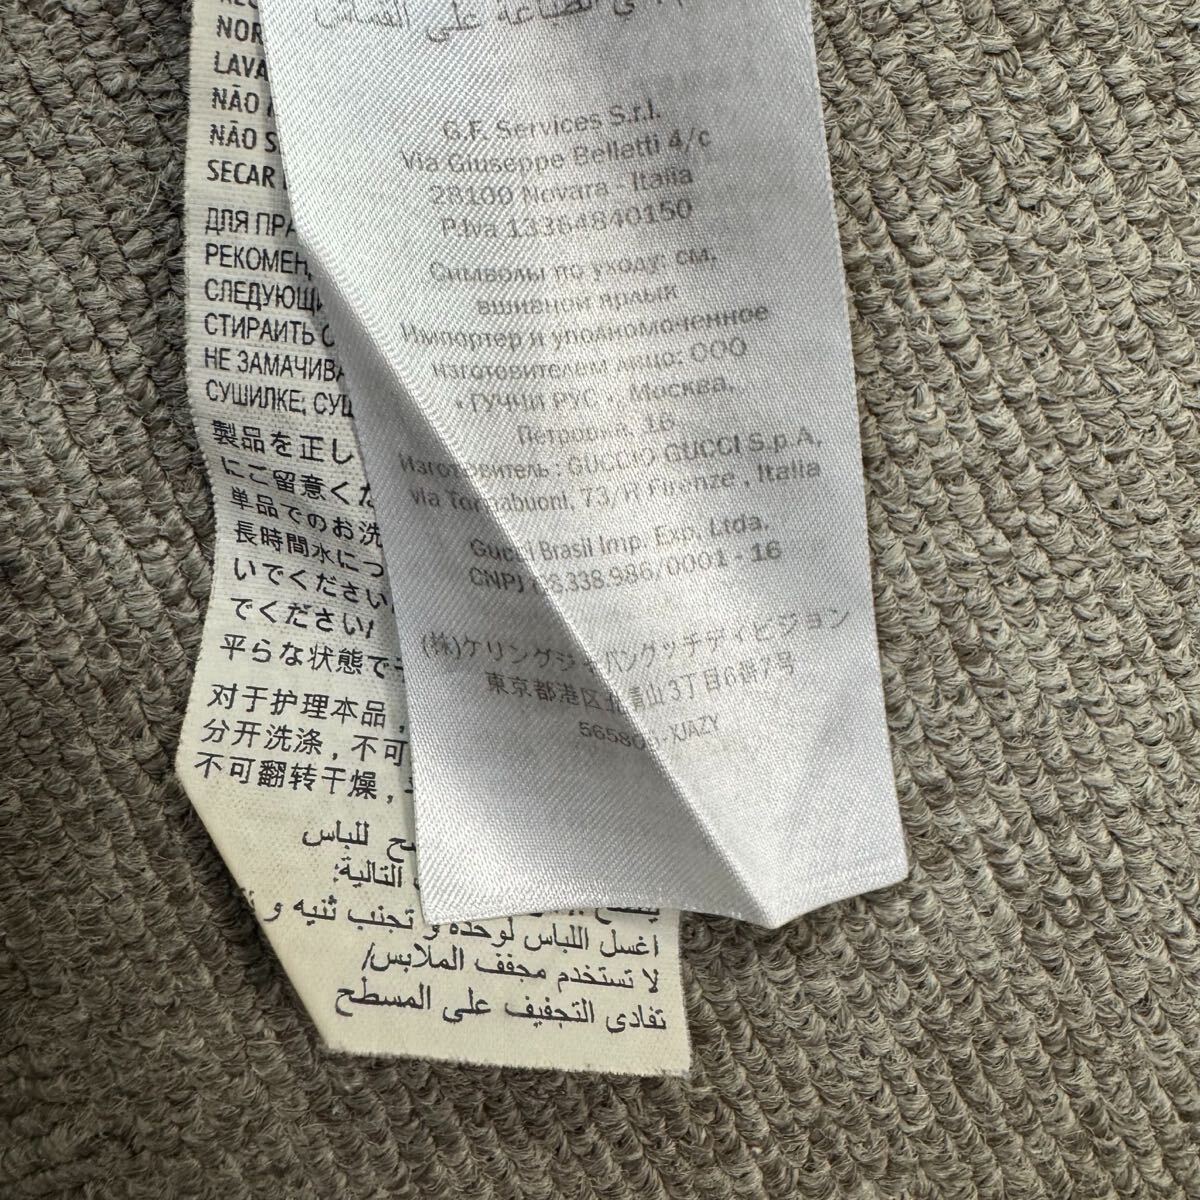 NOR
LAVA
NÃO
NÃO S
SECAR
ДЛЯ ПРА
РЕКОМЕН
СЛЕДУЮЩ
СТИРАИТЬ С
НЕ ЗАМАЧИВ
СУШИЛКЕ; СУШ
製品を正し
にご留意くだ
単品でのお洗
長時間水につ
いでください
でください/
平らな状態で
对于护理本品，
分开洗涤，不可
不可翻转干燥，
للباس
التالية:
اغسل اللباس لوحده و تجنب ثنيه و
لا تستخدم مجفف الملابس/
تفادى التجفيف على المسطح
على القماش
G.F. Services S.r.l.
Via Giuseppe Belletti 4/c
28100 Novara - Italia
P.Iva 13364840150
Символы по уходу: см.
вшивной ярлык
Импортер и уполномоченное
изготовителем лицо: ООО
«ГУЧЧИ РУС», Москва,
Петровка, 16
Изготовитель : GUCCIO GUCCI S.p.A.
via Tornabuoni, 73/R Firenze - Italia
Gucci Brasil Imp. Exp. Ltda.
CNPJ 08.338.986/0001 - 16
(株)ケリングジャパングッチディビジョン
東京都港区北青山3丁目6番7号
-XJAZY